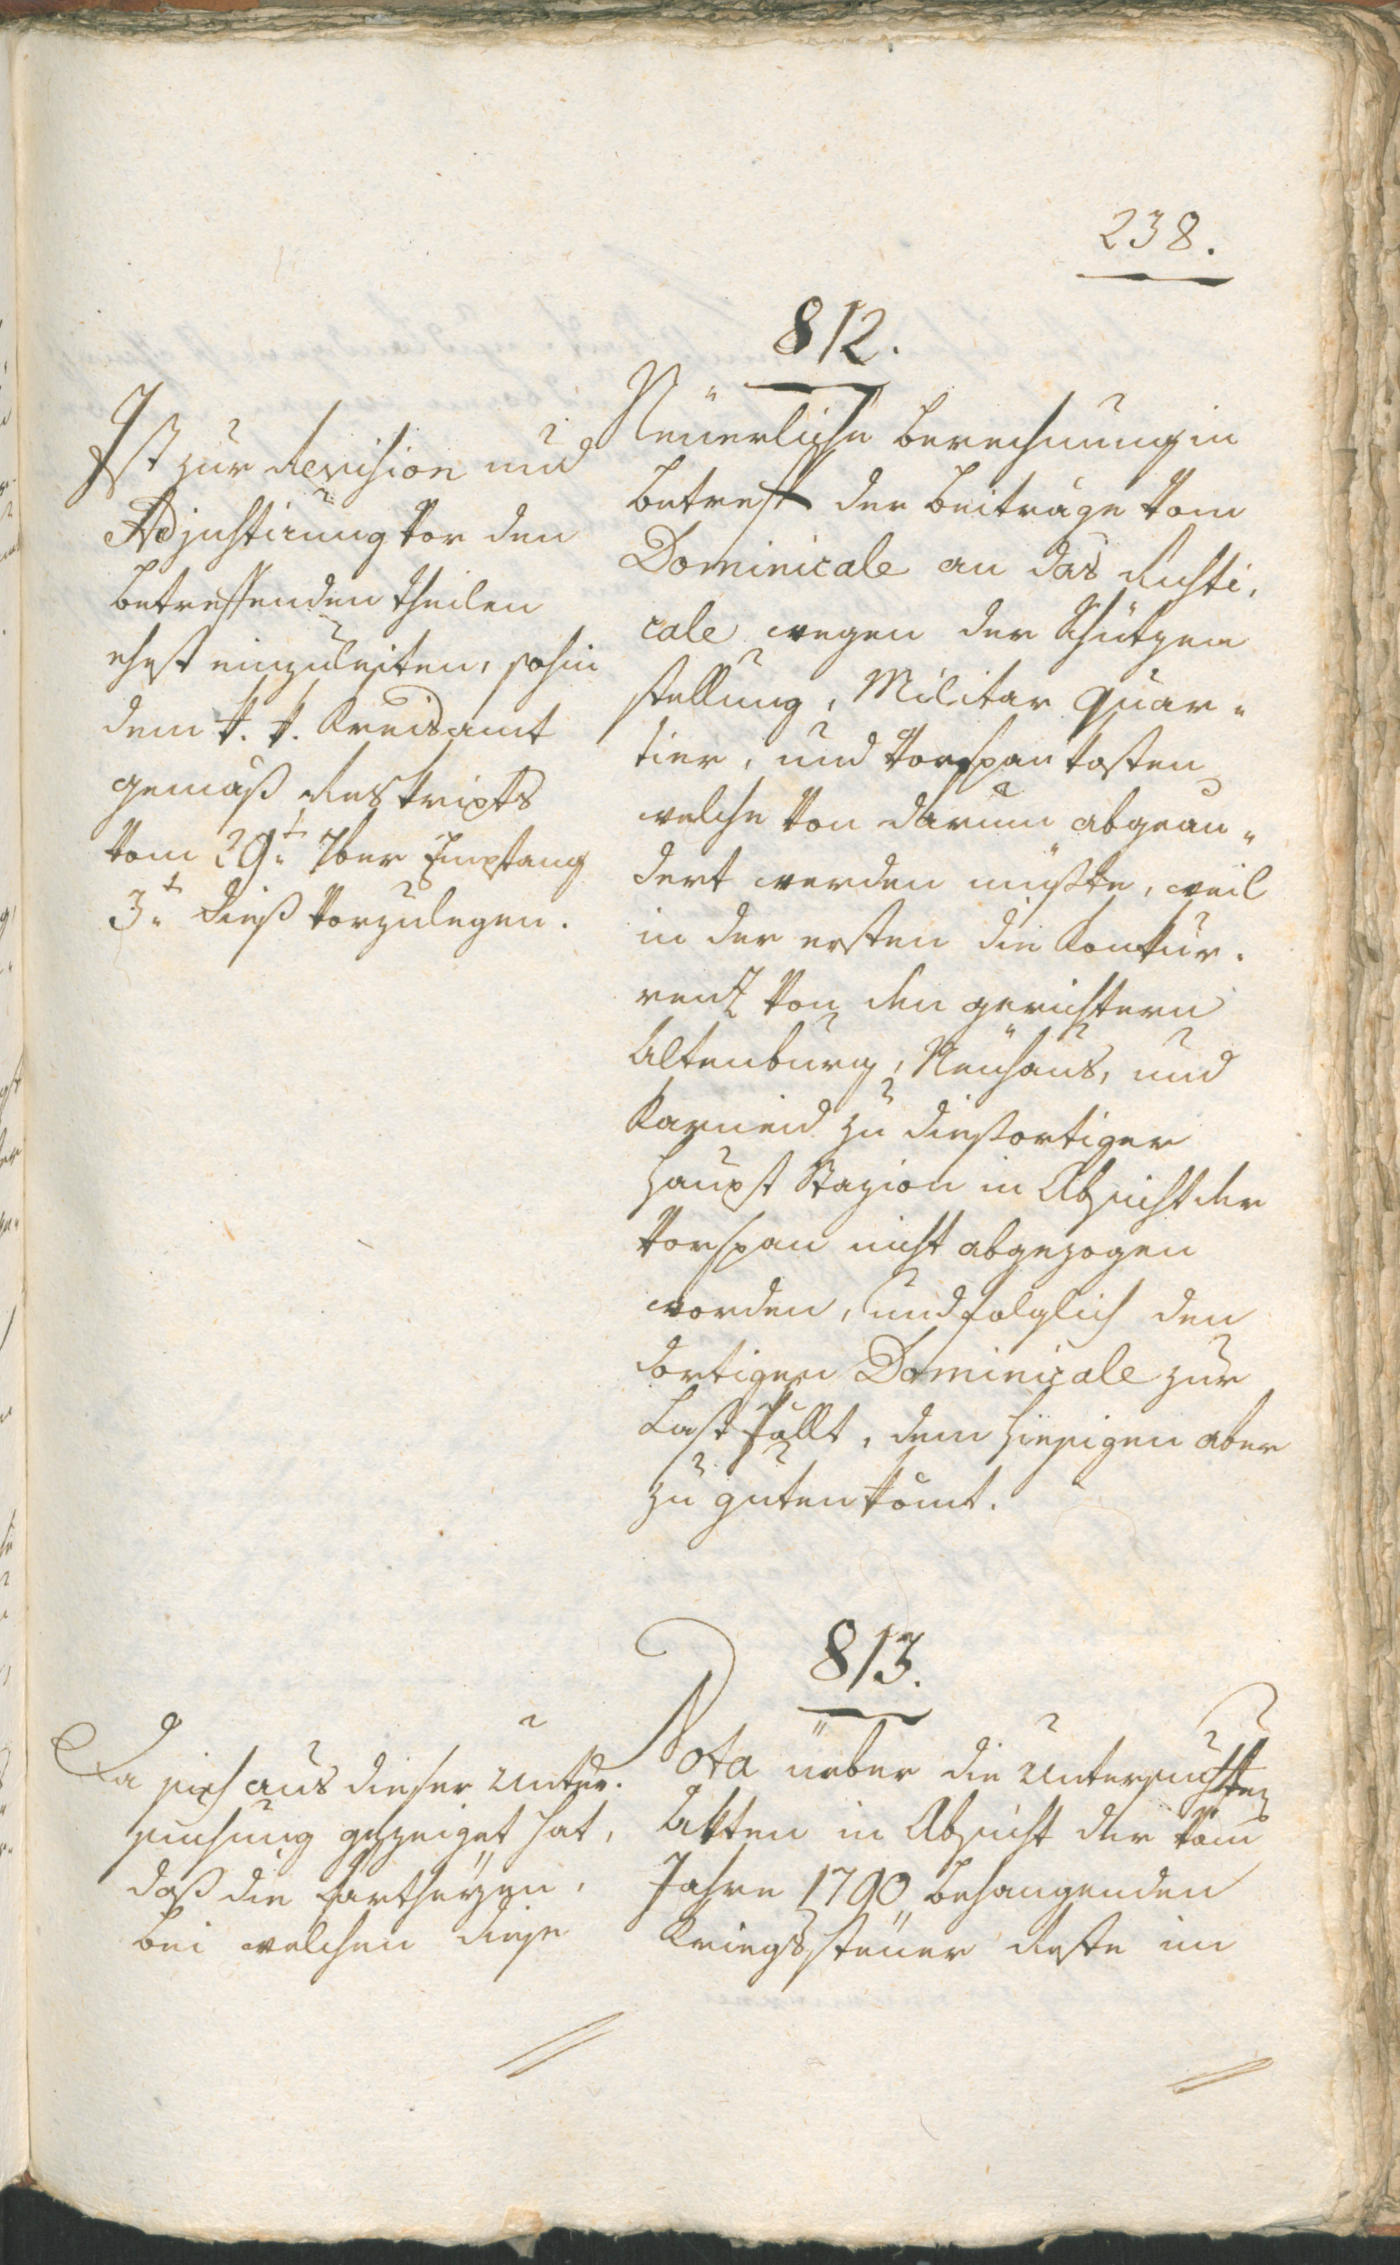 238.
812.
Ist zur Revision und
Adjustirung vor den
betreffenden Theilen
ehest einzuleiten, sohin
dem k. k. Kreisamt
gemäß Reskripts
vom 29t. 7ber Empfang
3t. dieß vorzulegen.
Neuerliche Berechnung in
betreff der Beiträge vom
Dominicale an das Rusti,
cale wegen der Schützen
stellung, Militar Quar=
tier, und Vorspan kosten
welche von darum abgeän=
dert werden müßte, weil
in der ersten die Konkur.
renz von den Gerichtern
Altenburg, Neuhaus, und
Karneid zu dießortiger
Haupt Stazion in Absicht der
Vorspan nicht abgezogen
worden, und folglich den
dortigen Dominicale zur
Last fällt, dem hiesigen aber
zu guten kömt.
813.
Da sich aus dieser Unter.
suchung gezeiget hat,
daß die Partheyen,
bei welchen diese
Nota üeber die Untersuchten
Akten in Absicht der vom
Jahre 1790 behangenden
Kriegssteuer Reste im